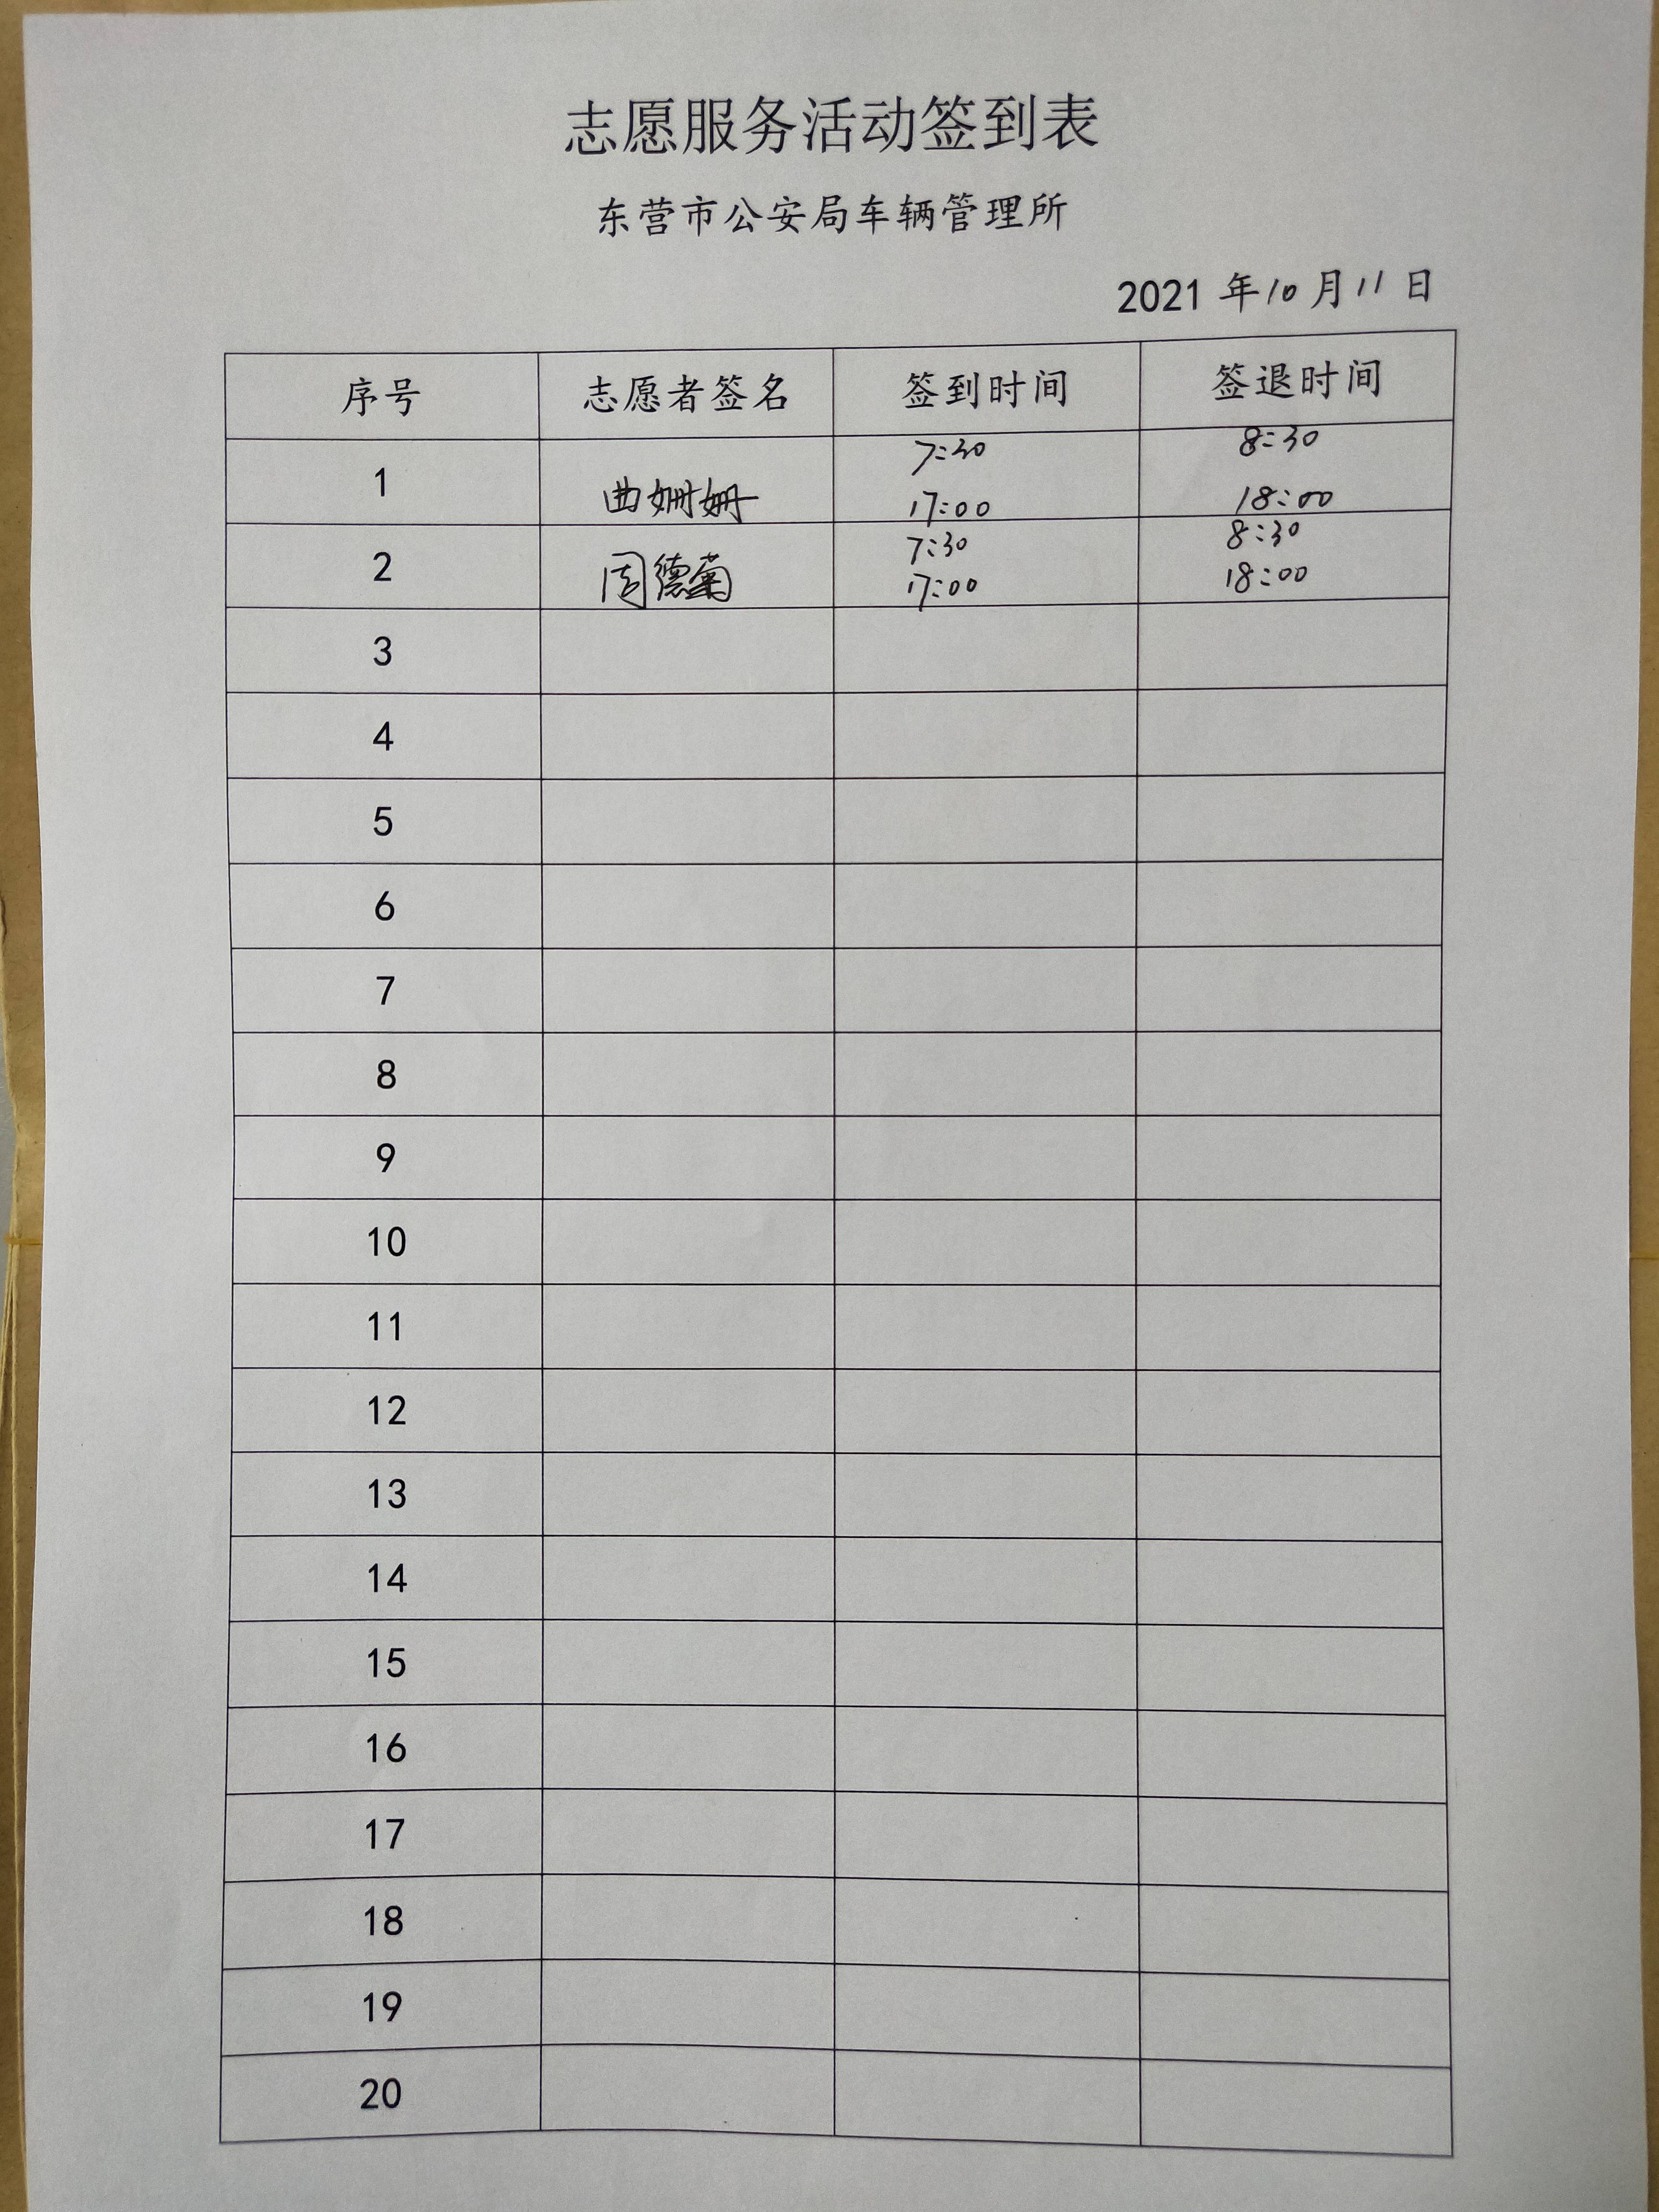 志愿服务活动签到表
东营市公安局车辆管理所
2021 年10月11日
序号 志愿者签名 签到时间 签退时间
7:30 8:30
1 曲姗姗 17:00 18:00
7:30 8:30
2 周德菊 17:00 18:00
3
4
5
6
7
8
9
10
11
12
13
14
15
16
17
18
19
20